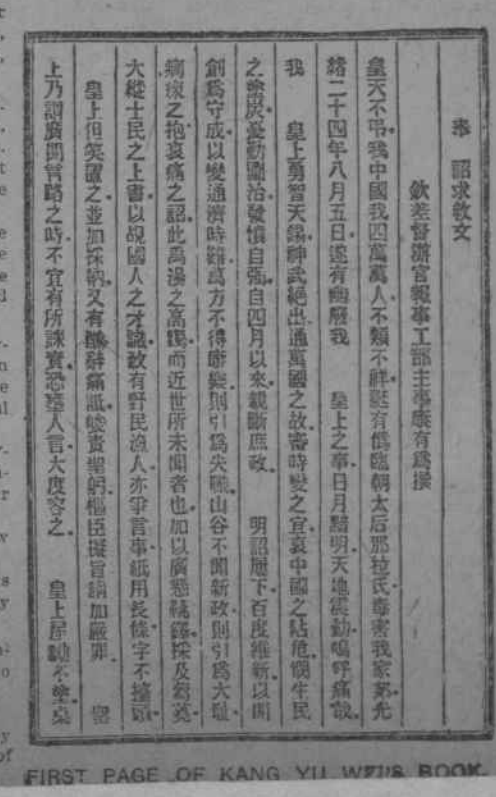 奉 詔求救文
欽差督辦官報事工部主事康有爲撰
皇天不弔我中國我四萬萬人不類不祥誕有僞臨朝太后那拉氏毒害我家邦光
緒二十四年八月五日遂有幽廢我 皇上之事日月黯明天地震動嗚呼痛哉
我 皇上勇智天錫神武絕出通萬國之故審時變之宜哀中國之阽危憫生民
之塗炭憂勤圖治發憤自强自四月以來親斷庶政 明詔屢下百度維新以開
創爲守成以變通濟時艱萬方不得樂則引爲失職山谷不聞新政則引爲大恥
痌瘝之抱哀痛之詔此禹湯之高躅而近世所未聞者也加以廣懸鐸採及芻蕘
大縱士民之上書以覘國人之才識故有野民漁人亦爭言事紙用長條字不擡頭
皇上但笑置之並加採納又有醜辭痛詆峻責聖躬樞臣擬旨請加嚴罪 皇
上乃謂廣開言路之時不宜有所誅責恐塞人言大度容之 皇上居不塗桌
FIRST PAGE OF KANG YU WEI'S BOOK